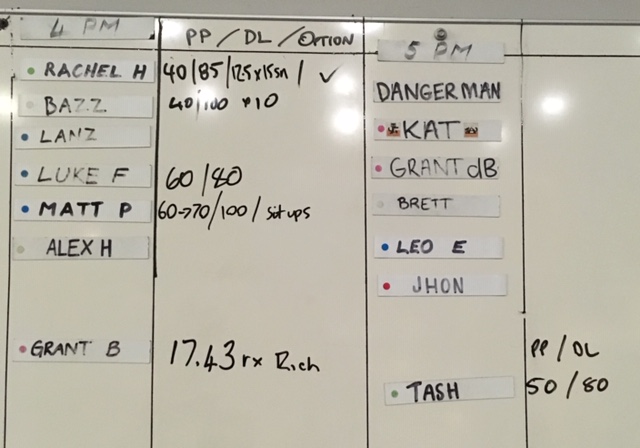 4 PM
PP / DL / OPTION
RACHEL H 40/85/12.5x15sn / ✓
BAZZ 40/100 x10
LANZ
LUKE F 60/80
MATT P 60→70/100/sit ups
ALEX H
GRANT B 17.43 rx Rich
5 PM
DANGERMAN
KAT
GRANT dB
BRETT
LEO E
JHON
PP / DL
TASH 50/80